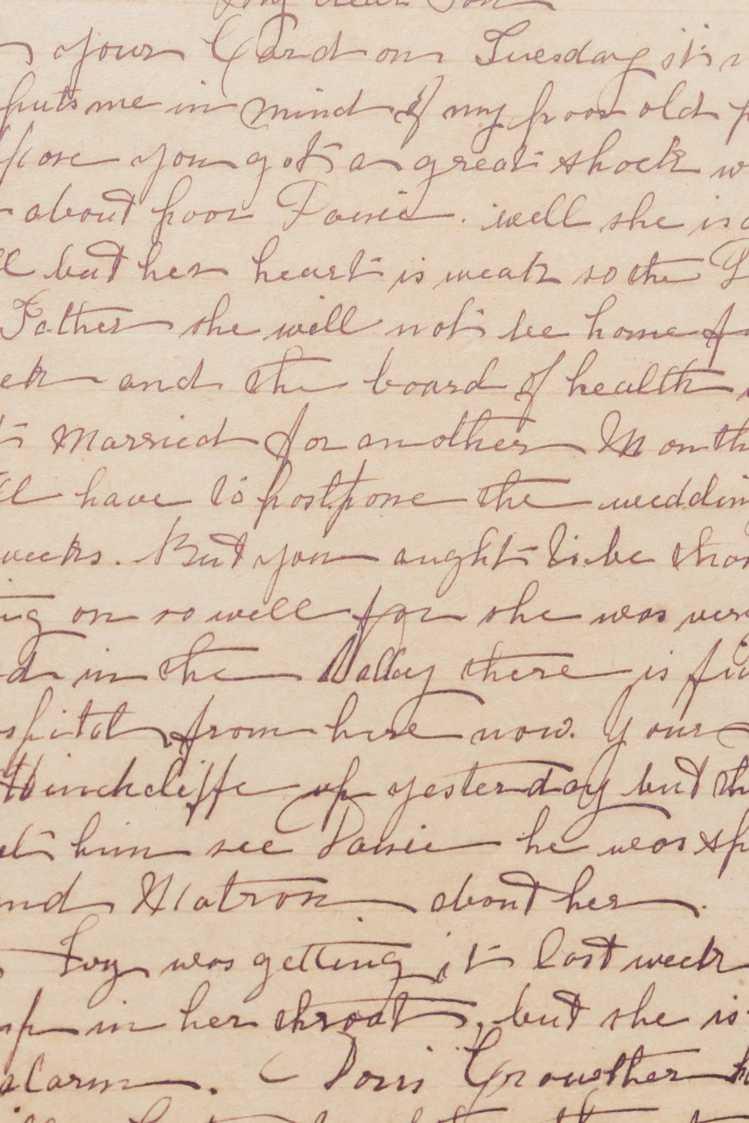 My dear Son
your Card on Tuesday it is
puts me in mind of my poor old
pose you got a great shock
about poor Janie. well she is
ll but her heart is weak so the
Father she will not be home
ek and the board of health
Married for another Month
ll have to postpone the weddin
weeks. But you aught to be than
ing on so well for she was very
d in the Valley there is
spital from here now. Your
Hinchcliffe up yesterday but th
et him see Janie he was sp
nd Matron about her.
Ivy was getting it last week
up in her throat, but she is
alarm. Doris Crowther